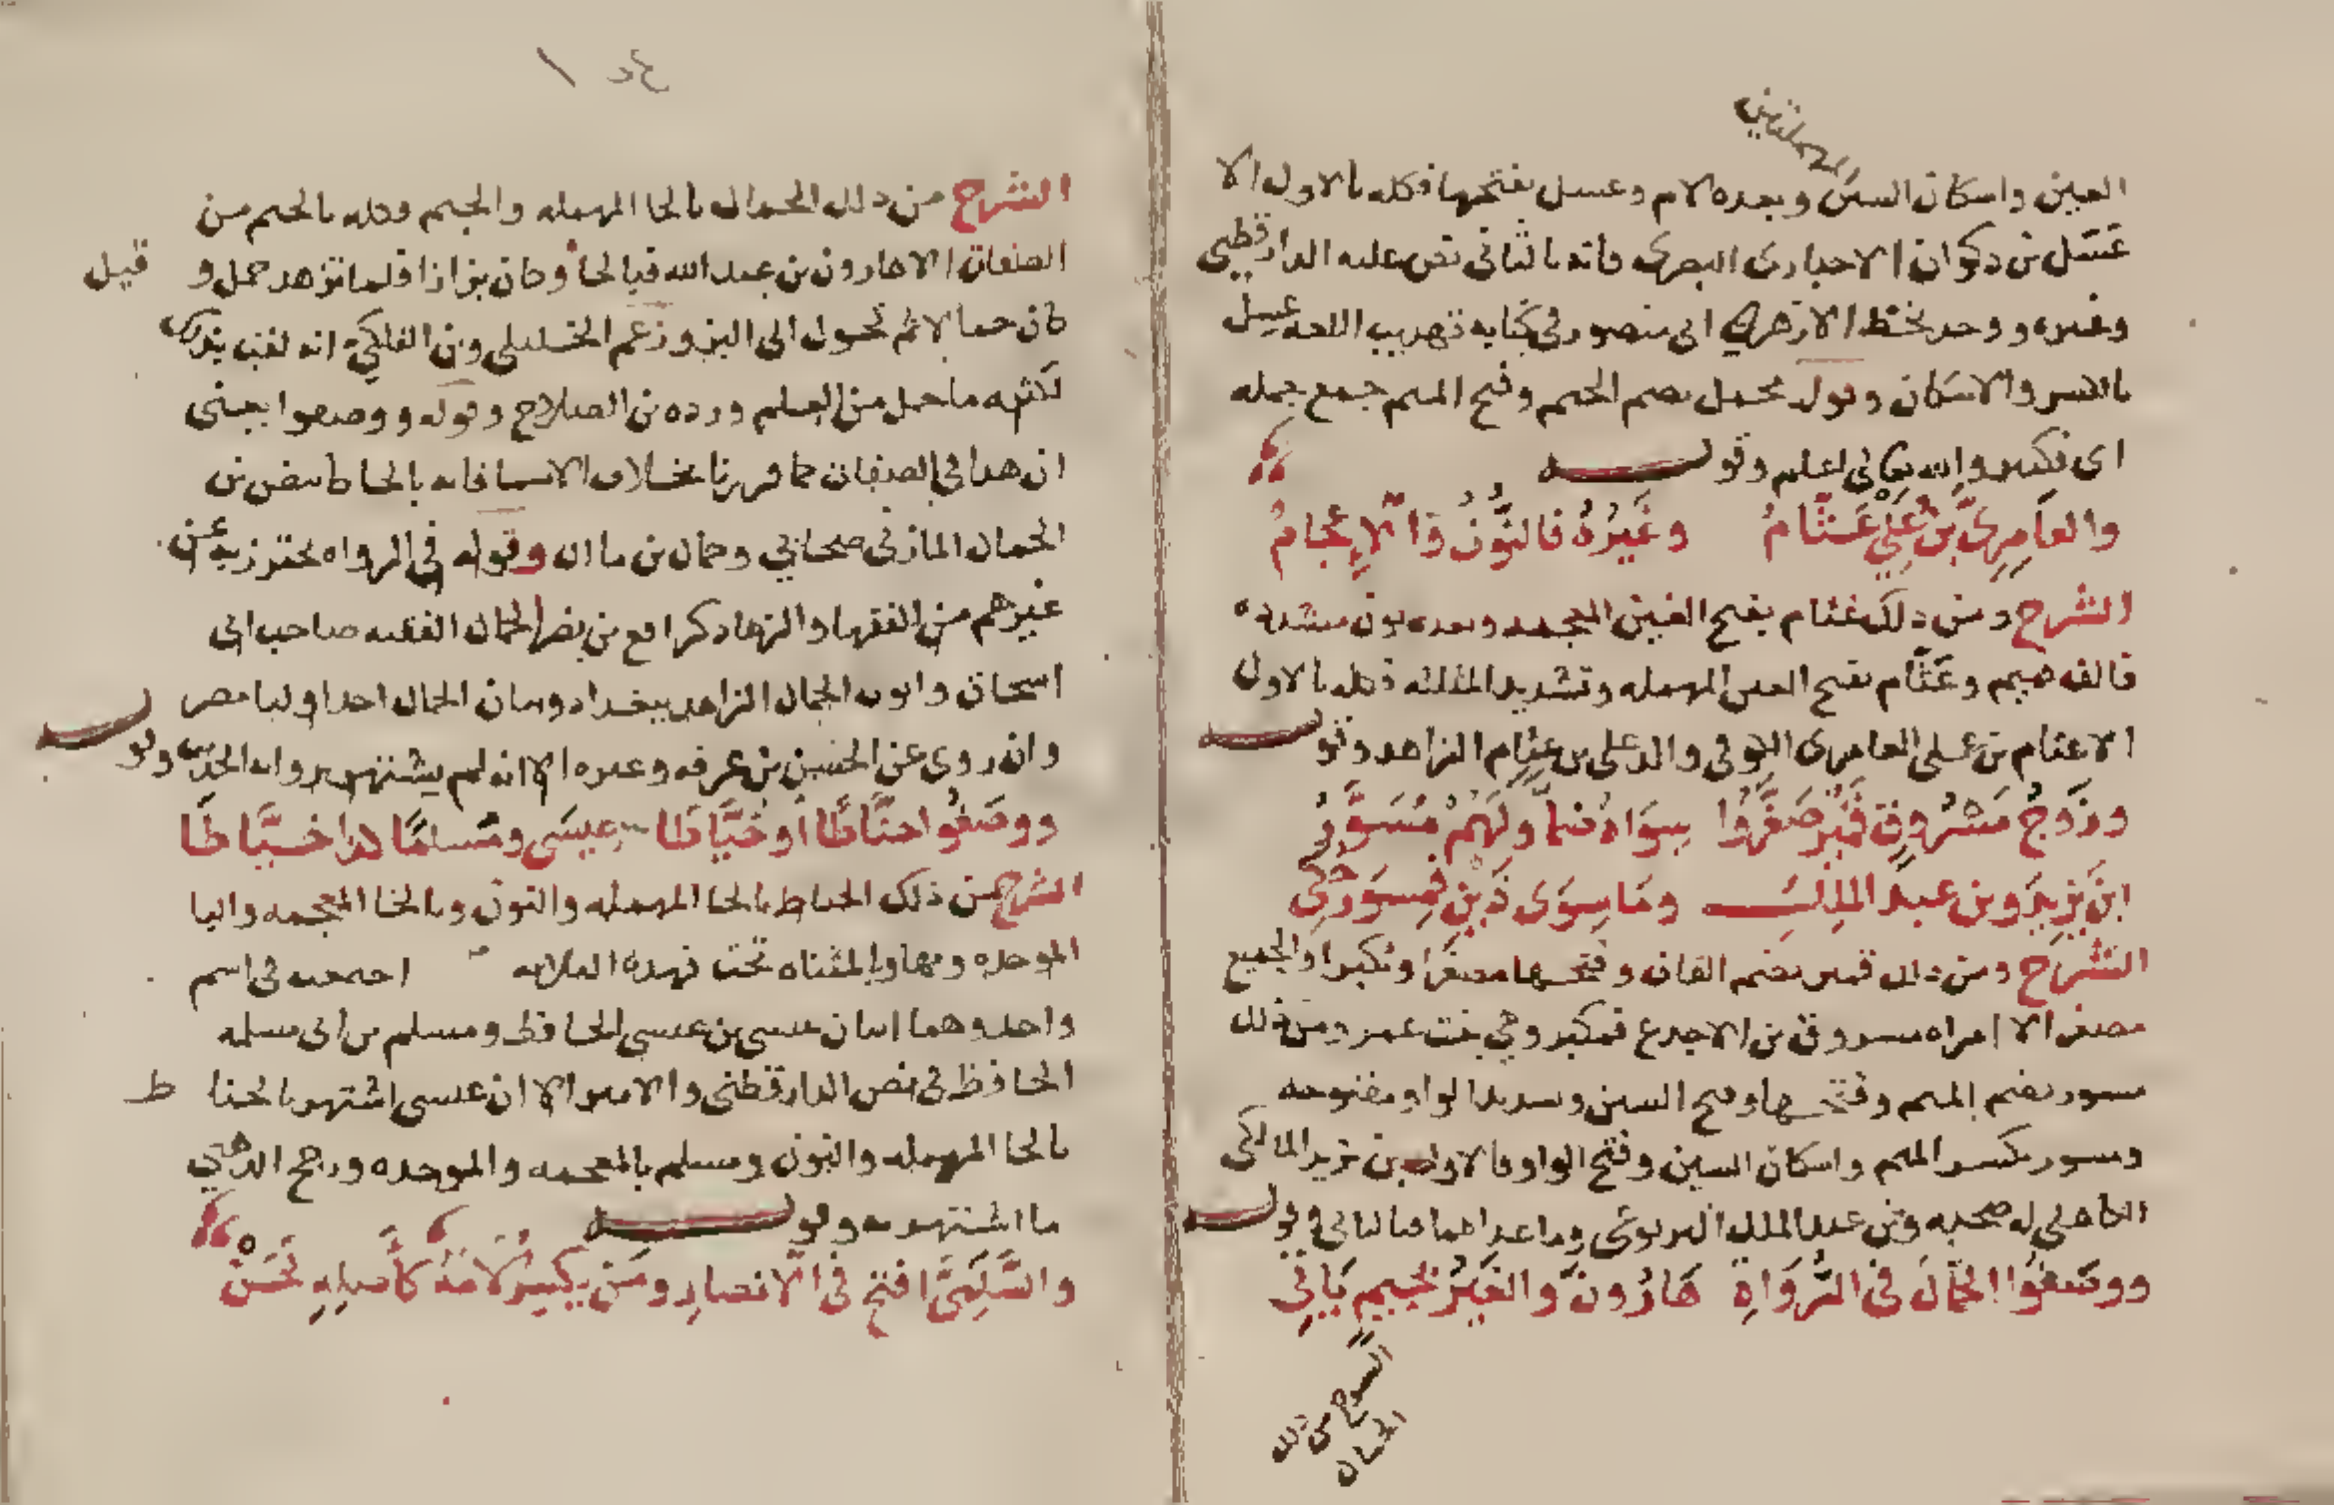 المهملتين
العين واسكان السين وبعده لام وعسل بفتحها فكله بالاول الا
عَسَل بن ذكوان الاخبارى البصرى فانه بالثانى نص عليه الدارقطني
وغيره ووجد بخط الازهرى ابى منصور في كتابه تهذيب اللغه عسل
بالكسر والاسكان وقول مجمل بضم الجيم وفتح الميم جمع جمله
اى فكثير والله تعالى اعلم وقوله
والعَامِرِىُّ بْنُ عَلِيْ عَثَّامُ وغَيْرُهُ فالنُّونُ وَالْإِعْجَامُ
الشرح ومن ذلك غنام بفتح الغين المعجمه وبعده نون مشدده
فالف فميم وعَثَّام بفتح العين المهمله وتشديد المثلثه فكله بالاول
الا عثام بن على العامرى الكوفي والد على بن عثام الزاهد وقوله
وزَوْجُ مَسْرُوقٍ قَمِيْرُ صَغَّرُوا سِوَاهُ ضَمًّا ولَهُمْ مُسَوَّرُ
ابنُ يَزِيدَ وبن عبد الملِكِ ومَا سِوَى ذَيْنِ فمِسوَر حُكِى
الشرح ومن ذلك قمير بضم القاف وفتحها مصغرا ومكبرا والجميع
مصغر الا امراه مسروق بن الاجدع فمكبر وهي بنت عمرو ومن ذلك
مسور بضم الميم وفتحها وفتح السين وتشديد الواو مفتوحه
ومسور بكسر الميم واسكان السين وفتح الواو فالاول بن يزيد المالكى
الكاهلي له صحبه وبن عبد الملك اليربوعى وما عداهما فبالثانى وقوله
ووصَفُوا الحَمَّالَ في الرُّوَاةِ هَارُونَ والغَيْرُ بجيمٍ يَاتِي
الشرح من ذلك
الحمال
الشرح من ذلك الحمال بالحا المهمله والجيم وكله بالجيم من
الصفات الا هارون بن عبد الله فبالحا وكان بزازا فلما تزهد حمل وقيل
كان حمالا ثم تحول الى البز وزعم الخليلى وبن الفلكي انه لقب بذلك
لكثره ما حمل من العلم ورده بن الصلاح وقوله ووصفوا يعنى
ان هذا في الصفات كما قررنا بخلاف الاسما فانه بالحا كابيض بن
الحمال المازنى صحابي وحمال بن مالك وقوله في الرواه يحترز به عن
غيرهم من الفقها والزهاد كرافع بن نصر الحمال الفقيه صاحب ابى
اسحاق وايوب الجمال الزاهد ببغداد وبنان الحمال احد اوليا مصر
وان روى عن الحسن بن عرفه وغيره الا انه لم يشتهر بروايه الحديث وقوله
ووصَفُوا حنَّاطًا أو خَبَّاطَا عيسَى ومُسلمًا كذا خيَّاطَا
الشرح من ذلك الحناط بالحا المهمله والنون وبالخا المعجمه والبا
الموحده وبها وبالمثناه تحت فهذه الثلاثه اجتمعت فى اسم
واحد وهما اثنان عيسى بن عيسى الحافظ ومسلم بن ابى مسلمه
الحافظ فى نص الدارقطنى والامير الا ان عيسى اشتهر بالحناط
بالحا المهمله والنون ومسلم بالمعجمه والموحده ورجح الذهبي
ما اشتهر به وقوله
والسَّلَمِىَّ افتح فى الْانصارِ ومَنْ يكسِرُ لَامَهُ كأَصلِهِ لَحَنْ